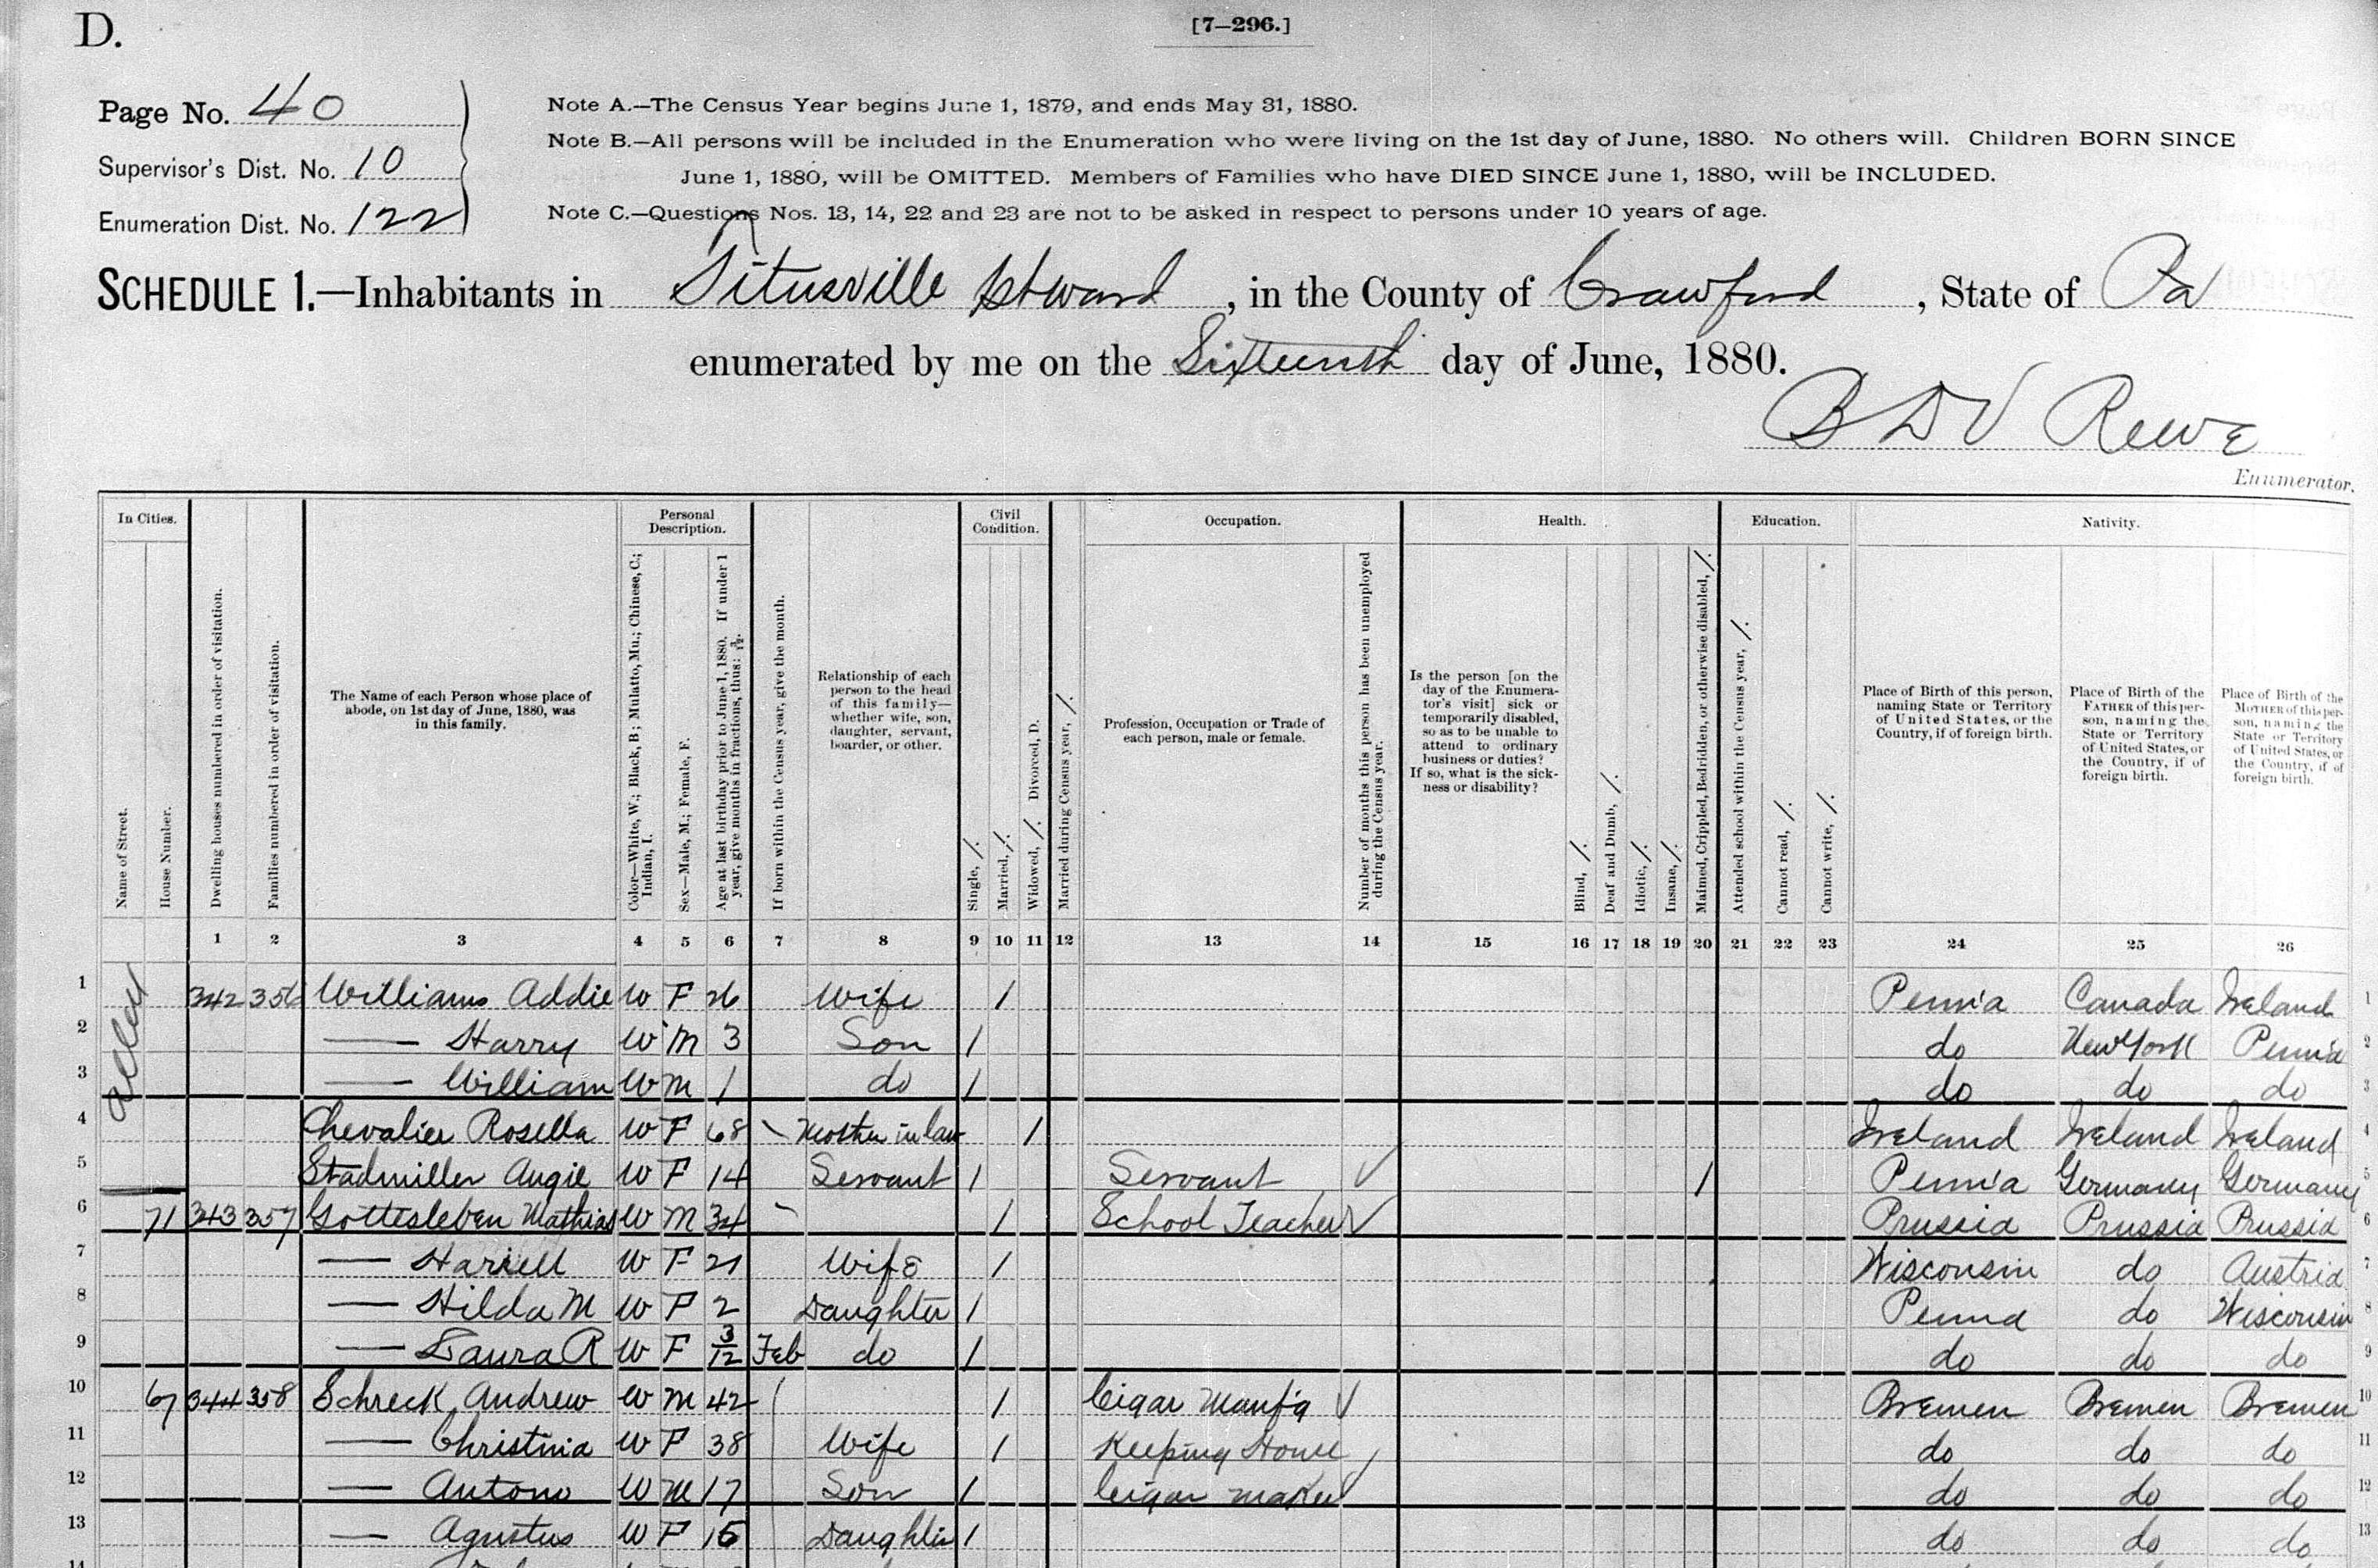 D.
[7–296.]
Page No. 40
Supervisor's Dist. No. 10
Enumeration Dist. No. 122
Note A.—The Census Year begins June 1, 1879, and ends May 31, 1880.
Note B.—All persons will be included in the Enumeration who were living on the 1st day of June, 1880. No others will. Children BORN SINCE
June 1, 1880, will be OMITTED. Members of Families who have DIED SINCE June 1, 1880, will be INCLUDED.
Note C.—Questions Nos. 13, 14, 22 and 23 are not to be asked in respect to persons under 10 years of age.
SCHEDULE 1.—Inhabitants in Titusville 1st ward, in the County of Crawford, State of Pa
enumerated by me on the Sixteenth day of June, 1880.
B D V Reeve
Enumerator.
In Cities. Personal Description. Civil Condition. Occupation. Health. Education. Nativity.
Name of Street.
House Number.
Dwelling houses numbered in order of visitation.
Families numbered in order of visitation.
The Name of each Person whose place of abode, on 1st day of June, 1880, was in this family.
Color—White, W.; Black, B; Mulatto, Mu.; Chinese, C.; Indian, I.
Sex—Male, M.; Female, F.
Age at last birthday prior to June 1, 1880. If under 1 year, give months in fractions, thus: 3/12.
If born within the Census year, give the month.
Relationship of each person to the head of this family—whether wife, son, daughter, servant, boarder, or other.
Single, /.
Married, /.
Widowed, /. Divorced, D.
Married during Census year, /.
Profession, Occupation or Trade of each person, male or female.
Number of months this person has been unemployed during the Census year.
Is the person [on the day of the Enumerator's visit] sick or temporarily disabled, so as to be unable to attend to ordinary business or duties? If so, what is the sickness or disability?
Blind, /.
Deaf and Dumb, /.
Idiotic, /.
Insane, /.
Maimed, Crippled, Bedridden, or otherwise disabled, /.
Attended school within the Census year, /.
Cannot read, /.
Cannot write, /.
Place of Birth of this person, naming State or Territory of United States, or the Country, if of foreign birth.
Place of Birth of the FATHER of this person, naming the State or Territory of United States, or the Country, if of foreign birth.
Place of Birth of the MOTHER of this person, naming the State or Territory of United States, or the Country, if of foreign birth.
1 2 3 4 5 6 7 8 9 10 11 12 13 14 15 16 17 18 19 20 21 22 23 24 25 26
1 342 356 Williams Addie W F 26 Wife / Penn'a Canada Ireland 1
2 — Harry W M 3 Son / do New York Penn'a 2
3 — William W M 1 do / do do do 3
4 Chevalier Rosella W F 68 Mother in law / Ireland Ireland Ireland 4
5 Stadmiller Augie W F 14 Servant / Servant / Penn'a Germany Germany 5
6 71 343 357 Gottesleben Mathias W M 34 / School Teacher Prussia Prussia Prussia 6
7 — Hariett W F 21 Wife / Wisconsin do Austria 7
8 — Hilda M W F 2 Daughter / Penna do Wisconsin 8
9 — Laura R W F 3/12 Feb do / do do do 9
10 67 344 358 Schreck Andrew W M 42 / Cigar Manf'g Bremen Bremen Bremen 10
11 — Christina W F 38 Wife / Keeping House do do do 11
12 — Antono W M 17 Son / Cigar maker do do do 12
13 — Agustus W F 15 Daughter / do do do 13
14